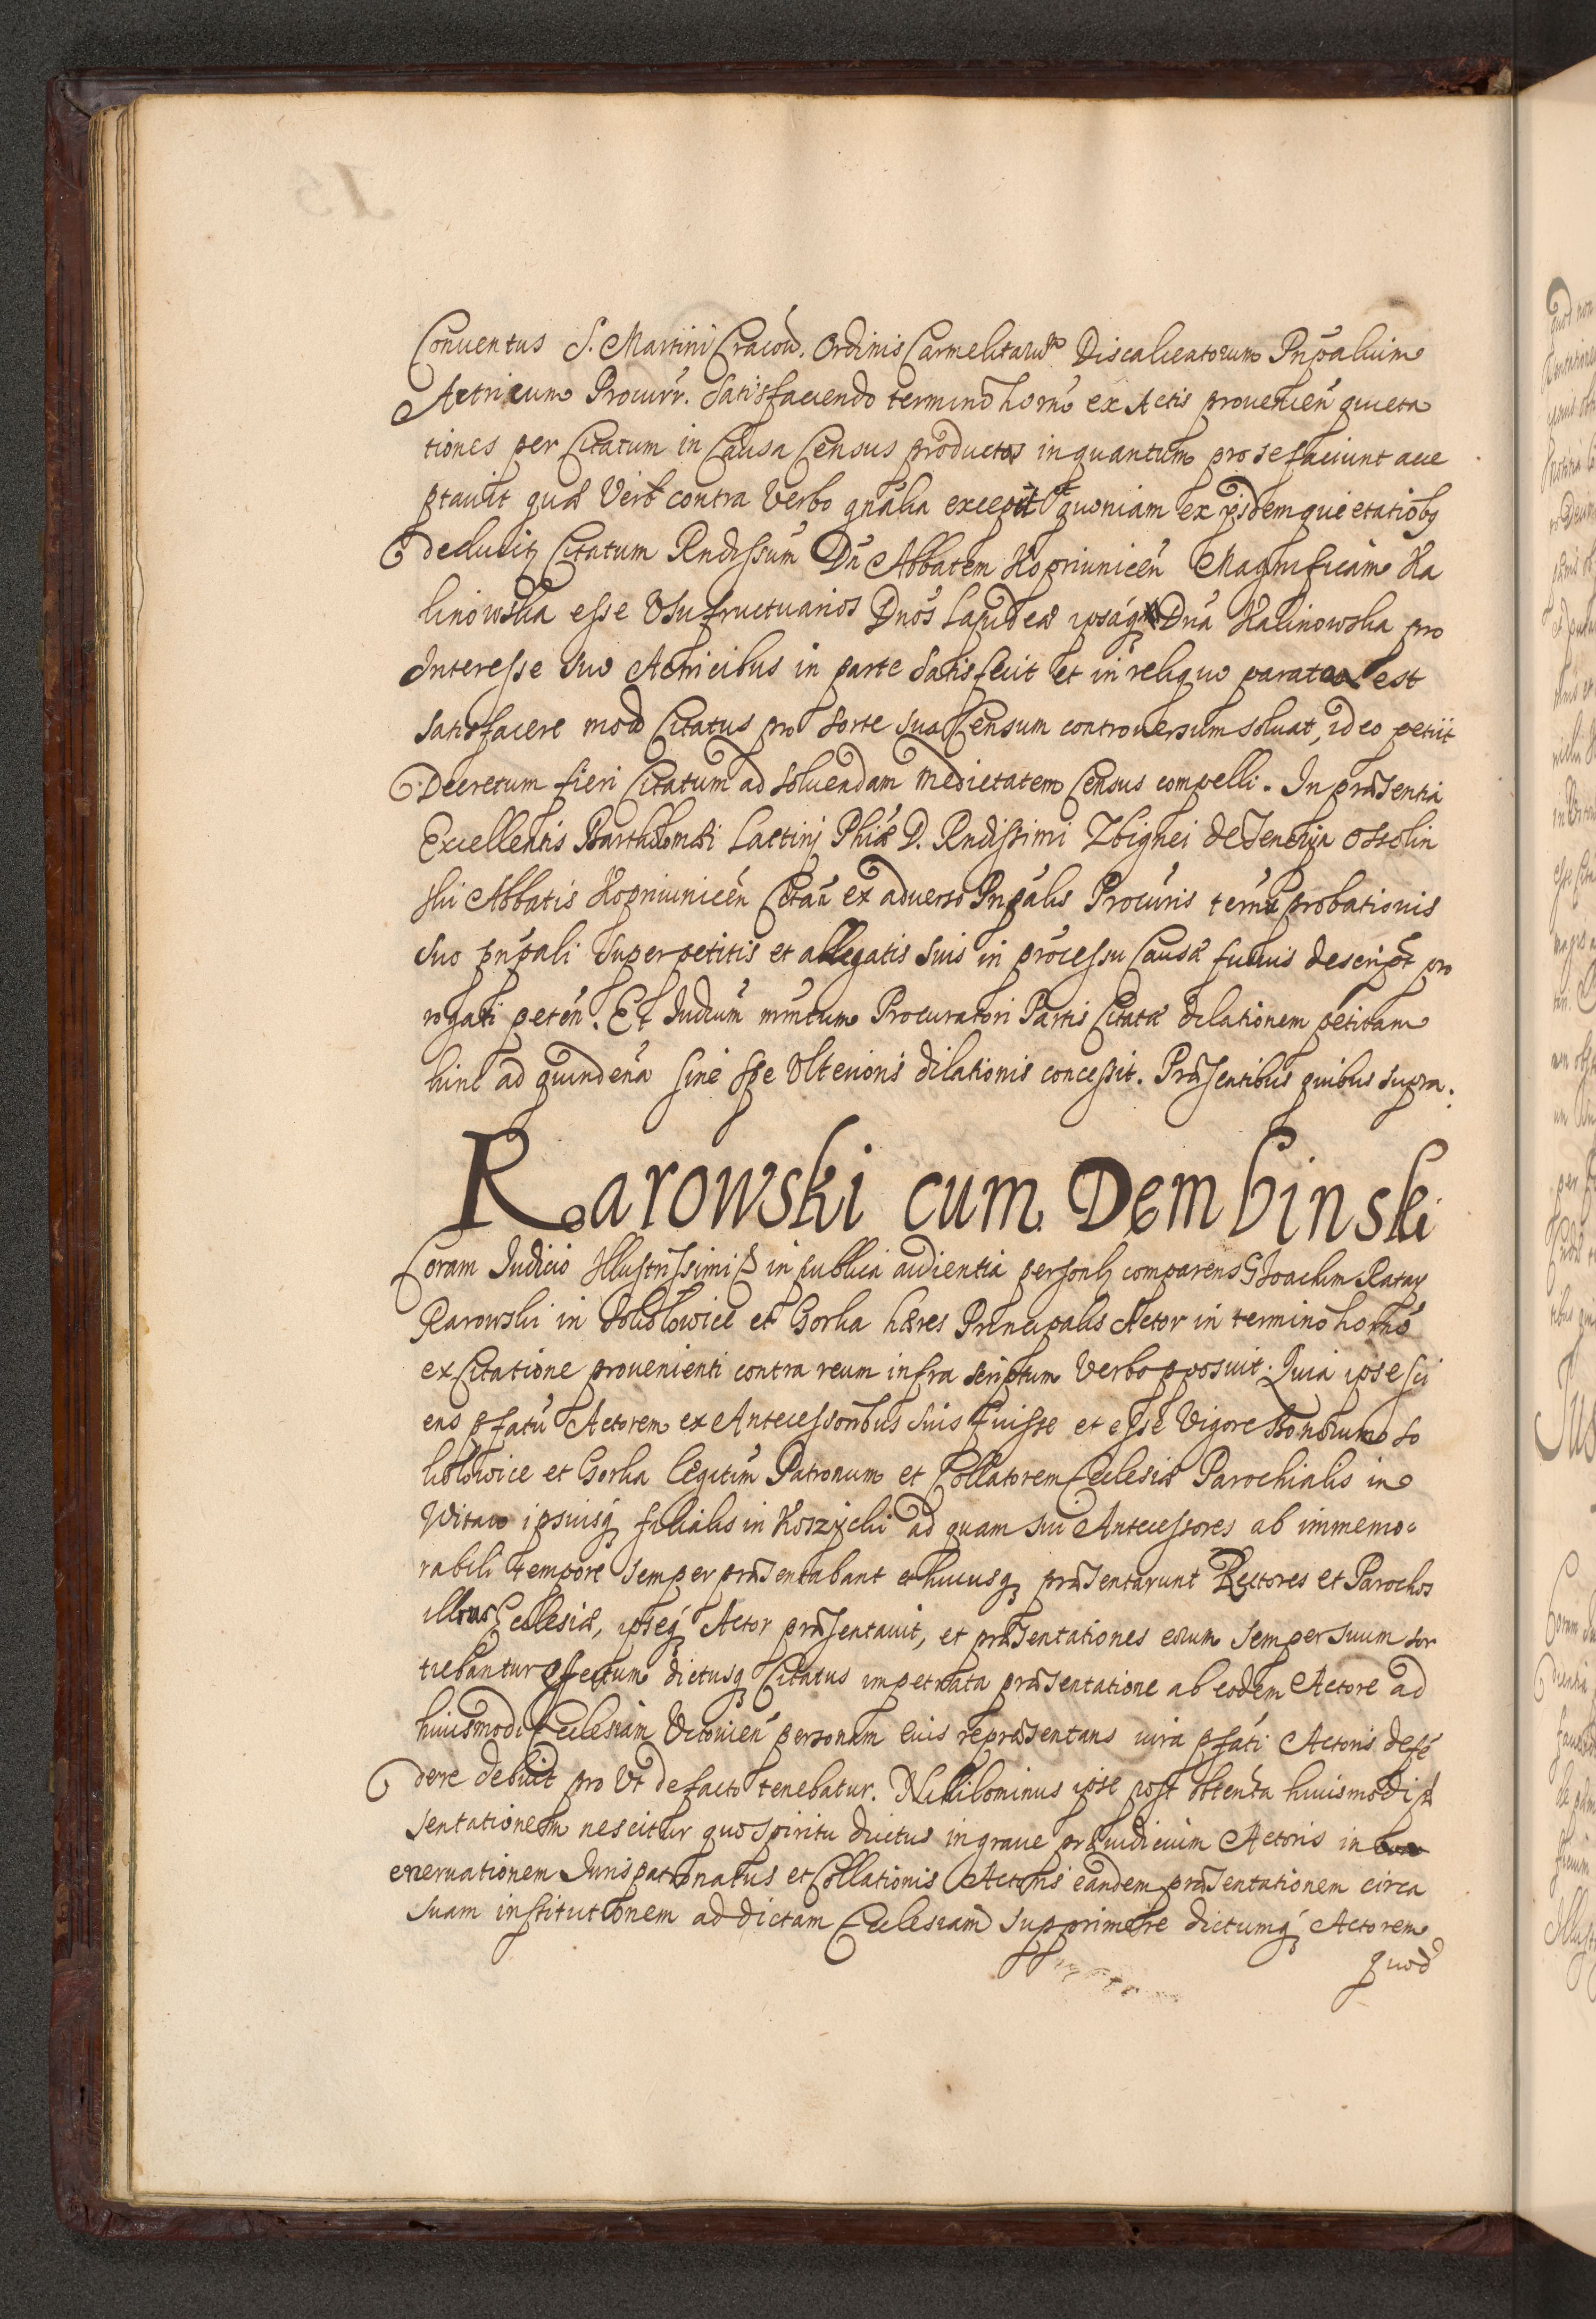 Conuentus S. Martini Cracou. Ordinis Carmelitarum Discalceatorum Pnpalium
Actricum Procurr. Satisfaciendo termino horno ex Actis prouenien quieta
tiones per Citatum in Causa Census productas inquantum pro se faciunt acce
ptauit quæ Vero contra Verbo gnalia excepit quoniam ex ijsdem quietatiobq
deducit Citatum Rndissum Dn Abbatem Kopriunicen Magnificam Ka
linowska esse Vsufructuarios Dnos Lapidea ipsaq Dna Kalinowska pro
Interesse suo Actricibus in parte satisfecit et in reliquo parata est
satisfacere modo Citatus pro sorte sua Censum controuersum soluat, ideo petiit
Decretum fieri Citatum ad soluendam medietatem Census compelli. In præsentia
Excellentis Bartholomæi Lactinj Phiæ D. Rndissimi Zbignei de Tenczyn Ossolin
ski Abbatis Kopriunicen Citati ex aduerso Pnpalis Procuris termi probationis
suo pnpali super petitis et allegatis suis in processu Causæ fusius descript pro
rogari peten. Et Judium mmtum Procuratori Partis Citatæ dilationem petitam
hinc ad quindena sine spe Vlterioris dilationis concessit. Præsentibus quibus supra.
Rarowski cum Dembinski
Coram Judicio Illustrissimi in publica audientia personlr comparens G Joachim Ratay
Rarowski in Soliolowice et Gorka hæres Principalis Actor in termino horno
ex Citatione prouenienti contra reum infra scriptum Verbo pposuit. Quia ipse sci
ens pfatu Actorem ex Antecessoribus suis fuisse et esse Vigore Bonorum So
liolowice et Gorka legitim Patronum et Collatorem Ecclesiæ Parochialis in
Witow ipsiusq filialis in Koszycki ad quam sui Antecessores ab immemo-
rabili tempore semper præsentabant et hucusq præsentarunt Rectores et Parochos
illius Ecclesiæ, ipseq Actor præsentauit, et præsentationes eorum semper suum sor
tiebantur effectum dictusq Citatus impetrata præsentatione ab eodem Actore ad
huiusmodi Ecclesiam Vitouien personam eius repræsentans iura pfati Actoris defe
dere debuit pro Vt de facto tenebatur. Nihilominus ipse post obtenta huiusmodi præ
sentationem nescitur quo spiritu ductus in graue præiudicium Actoris in
eneruationem Juris patronatus et Collationis Actoris eandem præsentationem circa
suam institutionem ad dictam Ecclesiam supprimere dictumq Actorem
quod